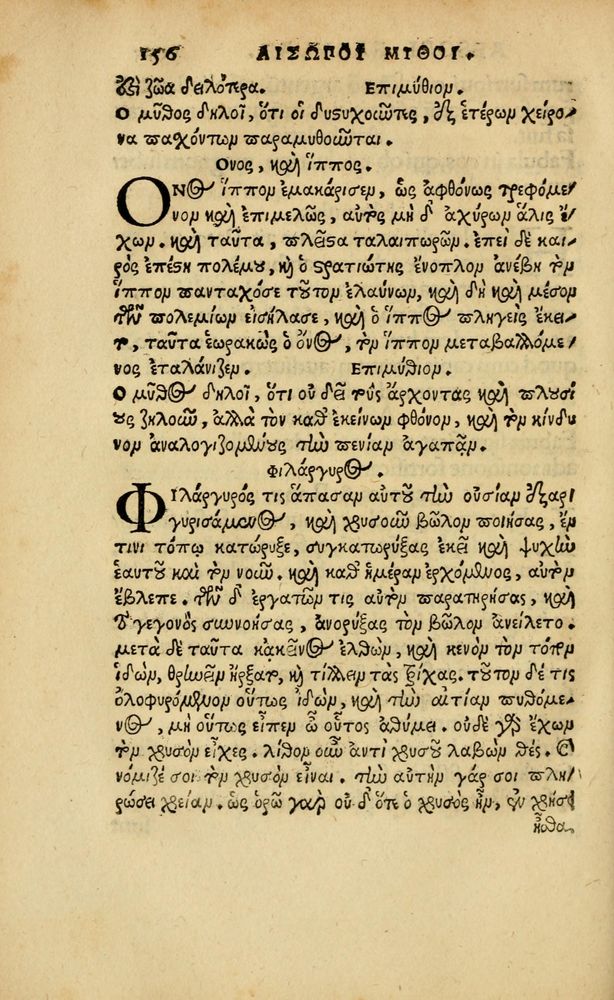 156 ΑΙΣΩΠΟΥ ΜΥΘΟΙ.
καὶ ζῶα δειλότερα. Ἐπιμύθιον.
Ὁ μῦθος δηλοῖ, ὅτι οἱ δυστυχοῦντες, ἐξ ἑτέρων χείρο-
να πασχόντων παραμυθοῦνται.
Ὄνος, καὶ ἵππος.
ΟΝος ἵππον ἐμακάρισεν, ὡς ἀφθόνως τρεφόμε-
νον καὶ ἐπιμελῶς, αὐτὸς μὴ δ' ἀχύρων ἅλις ἔ-
χων. καὶ ταῦτα, πλεῖστα ταλαιπωρῶν. ἐπεὶ δὲ και-
ρὸς ἐπέστη πολέμου, καὶ ὁ στρατιώτης ἔνοπλον ἀνέβη τὸν
ἵππον πανταχόσε τοῦτον ἐλαύνων, καὶ δὴ καὶ μέσον
τῶν πολεμίων εἰσήλασε, καὶ ὁ ἵππος πληγεὶς ἔκει-
το, ταῦτα ἑωρακὼς ὁ ὄνος, τὸν ἵππον μεταβαλλόμε-
νος ἐταλάνιζεν. Ἐπιμύθιον.
Ὁ μῦθος δηλοῖ, ὅτι οὐ δεῖ τοὺς ἄρχοντας καὶ πλουσί-
ους ζηλοῦν, ἀλλὰ τὸν κατ' ἐκείνων φθόνον, καὶ τὸν κίνδυ-
νον ἀναλογιζομένους τὴν πενίαν ἀγαπᾶν.
Φιλάργυρος.
ΦΙλάργυρός τις ἅπασαν αὐτοῦ τὴν οὐσίαν ἐξαρ-
γυρισάμενος, καὶ χρυσοῦν βῶλον ποιήσας, ἔν
τινι τόπῳ κατώρυξε, συγκατορύξας ἐκεῖ καὶ ψυχὴν
ἑαυτοῦ καὶ τὸν νοῦν. καὶ καθ' ἡμέραν ἐρχόμενος, αὐτὸν
ἔβλεπε. τῶν δ' ἐργατῶν τις αὐτὸν παρατηρήσας, καὶ
τὸ γεγονὸς συννοήσας, ἀνορύξας τὸν βῶλον ἀνείλετο.
μετὰ δὲ ταῦτα κἀκεῖνος ἐλθὼν, καὶ κενὸν τὸν τόπον
ἰδὼν, θρηνεῖν ἤρξατο, καὶ τίλλειν τὰς τρίχας. τοῦτον δέ τις
ὀλοφυρόμενον οὕτως ἰδὼν, καὶ τὴν αἰτίαν πυθόμε-
νος, μὴ οὕτως εἶπεν ὦ οὗτος ἀθύμει. οὐδὲ γὰρ ἔχων
τὸν χρυσὸν εἶχες. λίθον οὖν ἀντὶ χρυσοῦ λαβὼν θές. καὶ
νόμιζέ σοι τὸν χρυσὸν εἶναι. τὴν αὐτὴν γάρ σοι πλη-
ρώσει χρείαν. ὡς ὁρῶ γὰρ οὐ δ' ὅτε ὁ χρυσὸς ἦν, ἐν χρήσ-